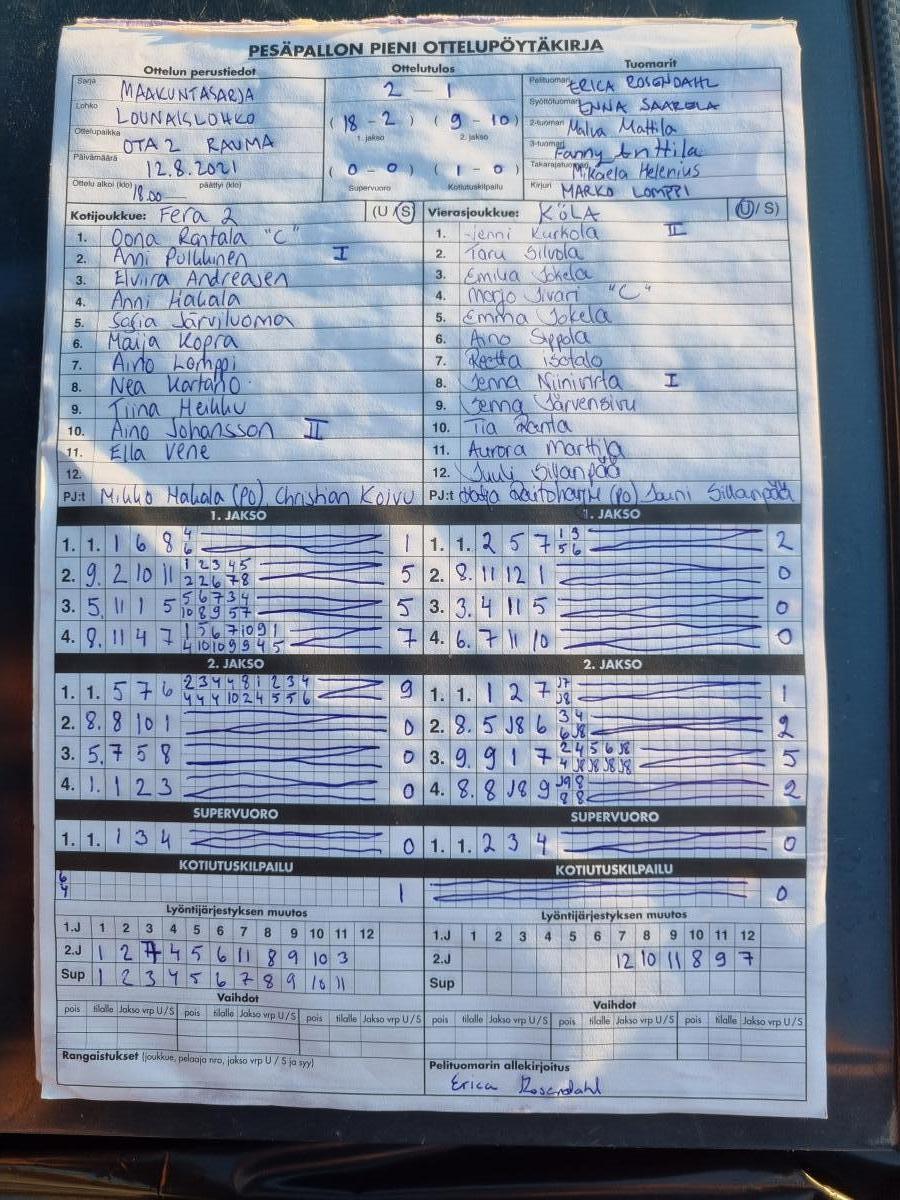 PESÄPALLON PIENI OTTELUPÖYTÄKIRJA
Ottelun perustiedot Ottelutulos Tuomarit
Sarja MAAKUNTASARJA 2 - 1 Pelituomari ERICA ROSENDAHL
Lohko LOUNAISLOHKO Syöttötuomari ENNA SAARELA
(18 - 2) (9 - 10) 2-tuomari Malva Mattila
1. jakso 2. jakso
Ottelupaikka OTA 2 RAUMA 3-tuomari Fanny Anttila
Päivämäärä 12.8.2021 (0 - 0) (1 - 0) Takarajatuomari Mikaela Helenius
Ottelu alkoi (klo) 18.00 päättyi (klo) Supervuoro Kotiutuskilpailu Kirjuri MARKO LOMPPI
Kotijoukkue: Fera 2 (U / S) Vierasjoukkue: KöLA (U / S)
1. Oona Rantala "C" 1. Jenni Kurkola II
2. Anni Pulkkinen I 2. Taru Silvola
3. Elviira Andreasen 3. Emilia Jokela
4. Anni Hakala 4. Marjo Jivari "C"
5. Sofia Järviluoma 5. Emma Jokela
6. Maija Kopra 6. Aino Sippola
7. Aino Lomppi 7. Reetta isotalo
8. Nea Kartano 8. Jenna Niinivirta I
9. Tiina Heikku 9. Jenna Järvensivu
10. Aino Johansson II 10. Tia Ranta
11. Ella Vene 11. Aurora Marttila
12. 12. Juuli Sillanpää
PJ:t Mikko Hakala (PO) Christian Koivu PJ:t (PO) Jouni Sillanpää
1. JAKSO 1. JAKSO
1. 1. 1 6 8 4 6 1 1. 1. 2 5 7 1 3 5 6 2
2. 9. 2 10 11 1 2 3 4 5 2 2 6 7 8 5 2. 8. 11 12 1 0
3. 5. 11 1 5 5 6 7 3 4 10 8 9 5 7 5 3. 3. 4 11 5 0
4. 8. 11 4 7 1 5 6 7 10 9 1 4 10 10 9 9 4 5 7 4. 6. 7 11 10 0
2. JAKSO 2. JAKSO
1. 1. 5 7 6 2 3 4 4 8 1 2 3 4 4 4 4 10 2 4 5 5 6 9 1. 1. 1 2 7 J7 J8 1
2. 8. 8 10 1 0 2. 8. 5 J8 6 3 4 6 J8 2
3. 5. 7 5 8 0 3. 9. 9 1 7 2 4 5 6 J8 4 J8 J8 J8 J8 5
4. 1. 1 2 3 0 4. 8. 8 J8 9 J9 8 8 8 2
SUPERVUORO SUPERVUORO
1. 1. 1 3 4 0 1. 1. 2 3 4 0
KOTIUTUSKILPAILU KOTIUTUSKILPAILU
6 4 1 0
Lyöntijärjestyksen muutos Lyöntijärjestyksen muutos
1.J 1 2 3 4 5 6 7 8 9 10 11 12 1.J 1 2 3 4 5 6 7 8 9 10 11 12
2.J 1 2 7 4 5 6 11 8 9 10 3 2.J 12 10 11 8 9 7
Sup 1 2 3 4 5 6 7 8 9 10 11 Sup
Vaihdot Vaihdot
pois tilalle Jakso vrp U / S pois tilalle Jakso vrp U / S pois tilalle Jakso vrp U / S pois tilalle Jakso vrp U / S pois tilalle Jakso vrp U / S pois tilalle Jakso vrp U / S
Rangaistukset (joukkue, pelaaja nro, jakso vrp U / S ja syy) Pelituomarin allekirjoitus
Erica Rosendahl